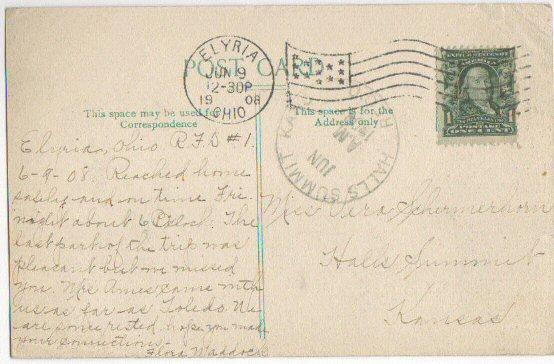 POST CARD
ELYRIA
JUN 9
12-30P
19 08
OHIO
UNITED STATES OF AMERICA
1 POSTAGE 1
ONE CENT
HALLS SUMMIT KANS
JUN
AM
This space may be used for
Correspondence
This space is for the
Address only
Elyria, Ohio R.F.D #1.
6-9-08. Reached home
safely and on time Fri.
night about 6 Oclock. The
last part of the trip was
pleasant but we missed
you. Mrs Ames came with
us as far as Toledo. We
are some rested, hope you made
your connections.-
Flora Maddock
Miss Vera Schermerhorn
Halls Summit
Kansas